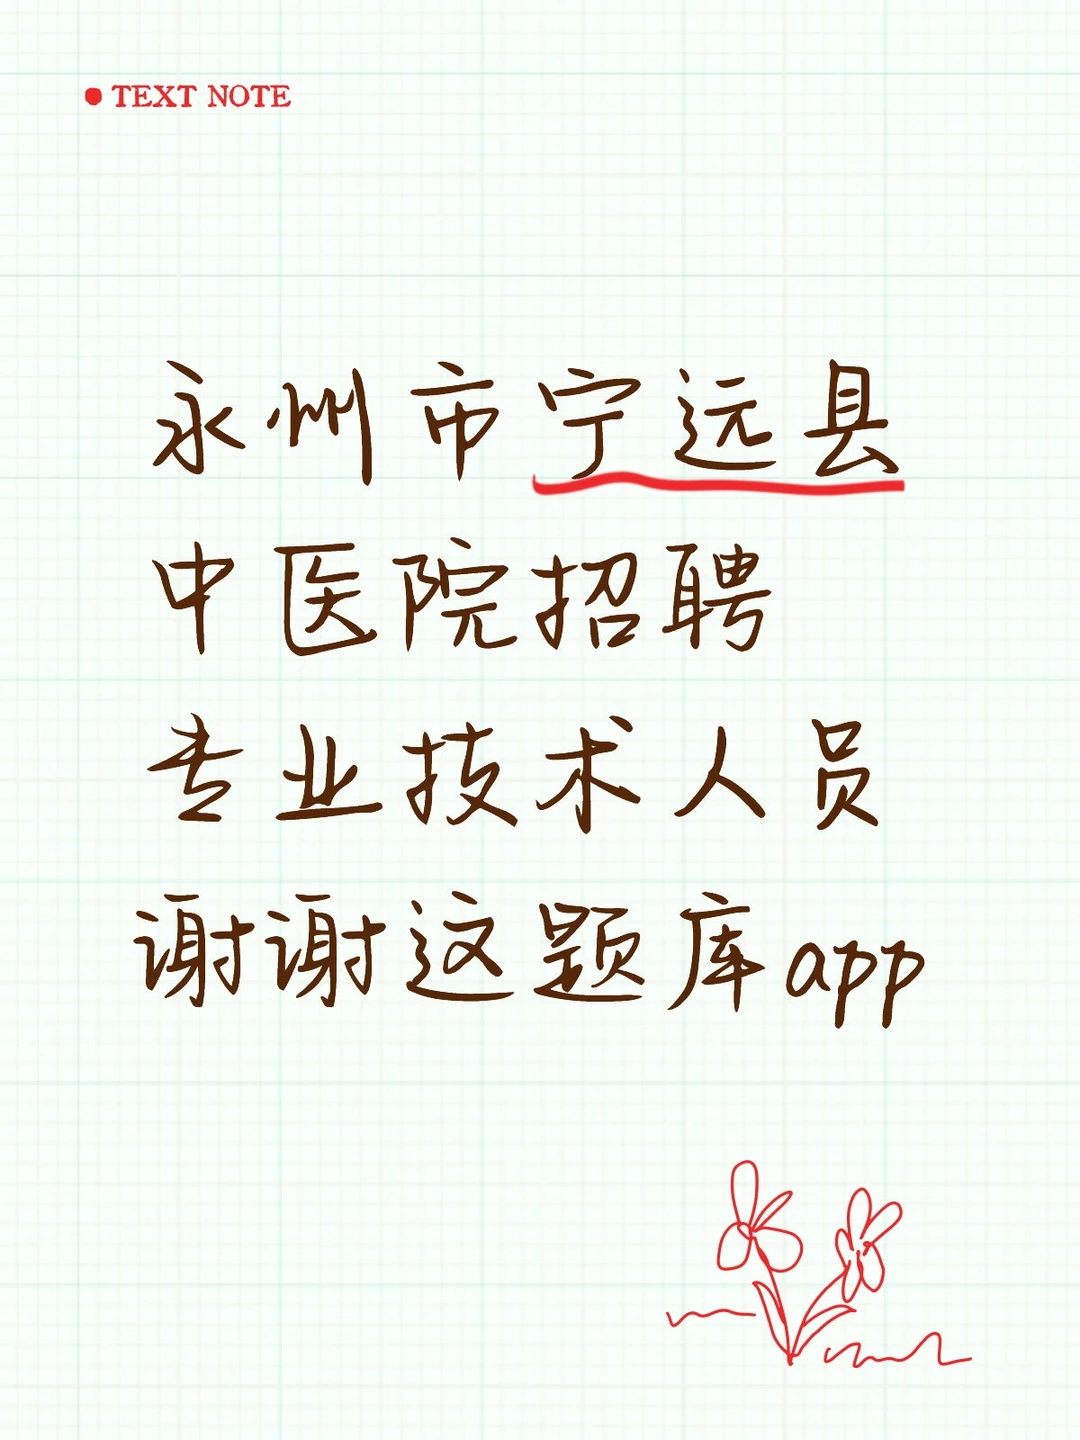 TEXT NOTE
永州市宁远县
中医院招聘
专业技术人员
谢谢这题库app